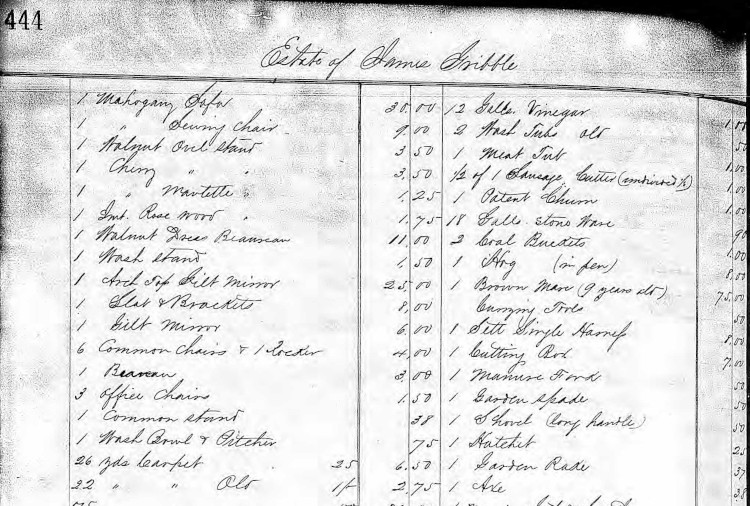 444
Estate of James Gribble
1 Mahogany Sofa 30.00
1 " Sewing Chair 9.00
1 Walnut Ovel Stand 3 50
1 Cherry " " 3.50
1 " " 1.25
1 Imt. Rose Wood " 1.75
1 Walnut Dress Beaureau 11.00
1 Wash stand 1.50
1 Arch Top Gilt Mirror 25.00
1 Slat & Brackets 8.00
1 Gilt Mirror 6 00
6 Common Chairs & 1 Rocker 4.00
1 Beaureau 3.00
3 Office Chairs 1.50
1 Common stand 38
1 Wash Bowl & Pitcher 75
26 yds Carpet 25 6.50
22 " " Old 2.75
12 Galls. Vinegar 1.00
2 Wash Tubs old 50
1 Meat Tub 1.00
1/2 of 1 Sausage Cutter (undivided 1/2) 1.00
1 Patent Churn 1.00
18 Galls. Stone Ware 90
2 Coal Buckets 1.00
1 Hog (in pen) 8.00
1 Brown Mare (9 years old) 75.00
Currying Tools 50
1 Sett Single Harness 8.00
1 Cutting Box 7.00
1 Manure Fork 50
1 Garden Spade 50
1 Shovel (long handle) 50
1 Hatchet 25
1 Garden Rake 37
1 Axe 38